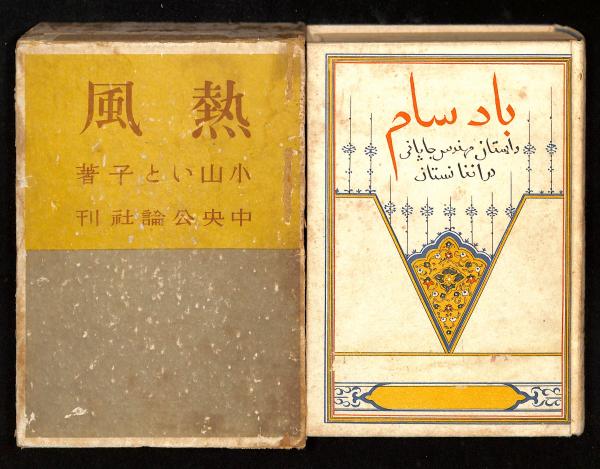 熱風
小山いと子著
中央公論社刊
باد سام
داستان مهندس جاپانی
در افغانستان